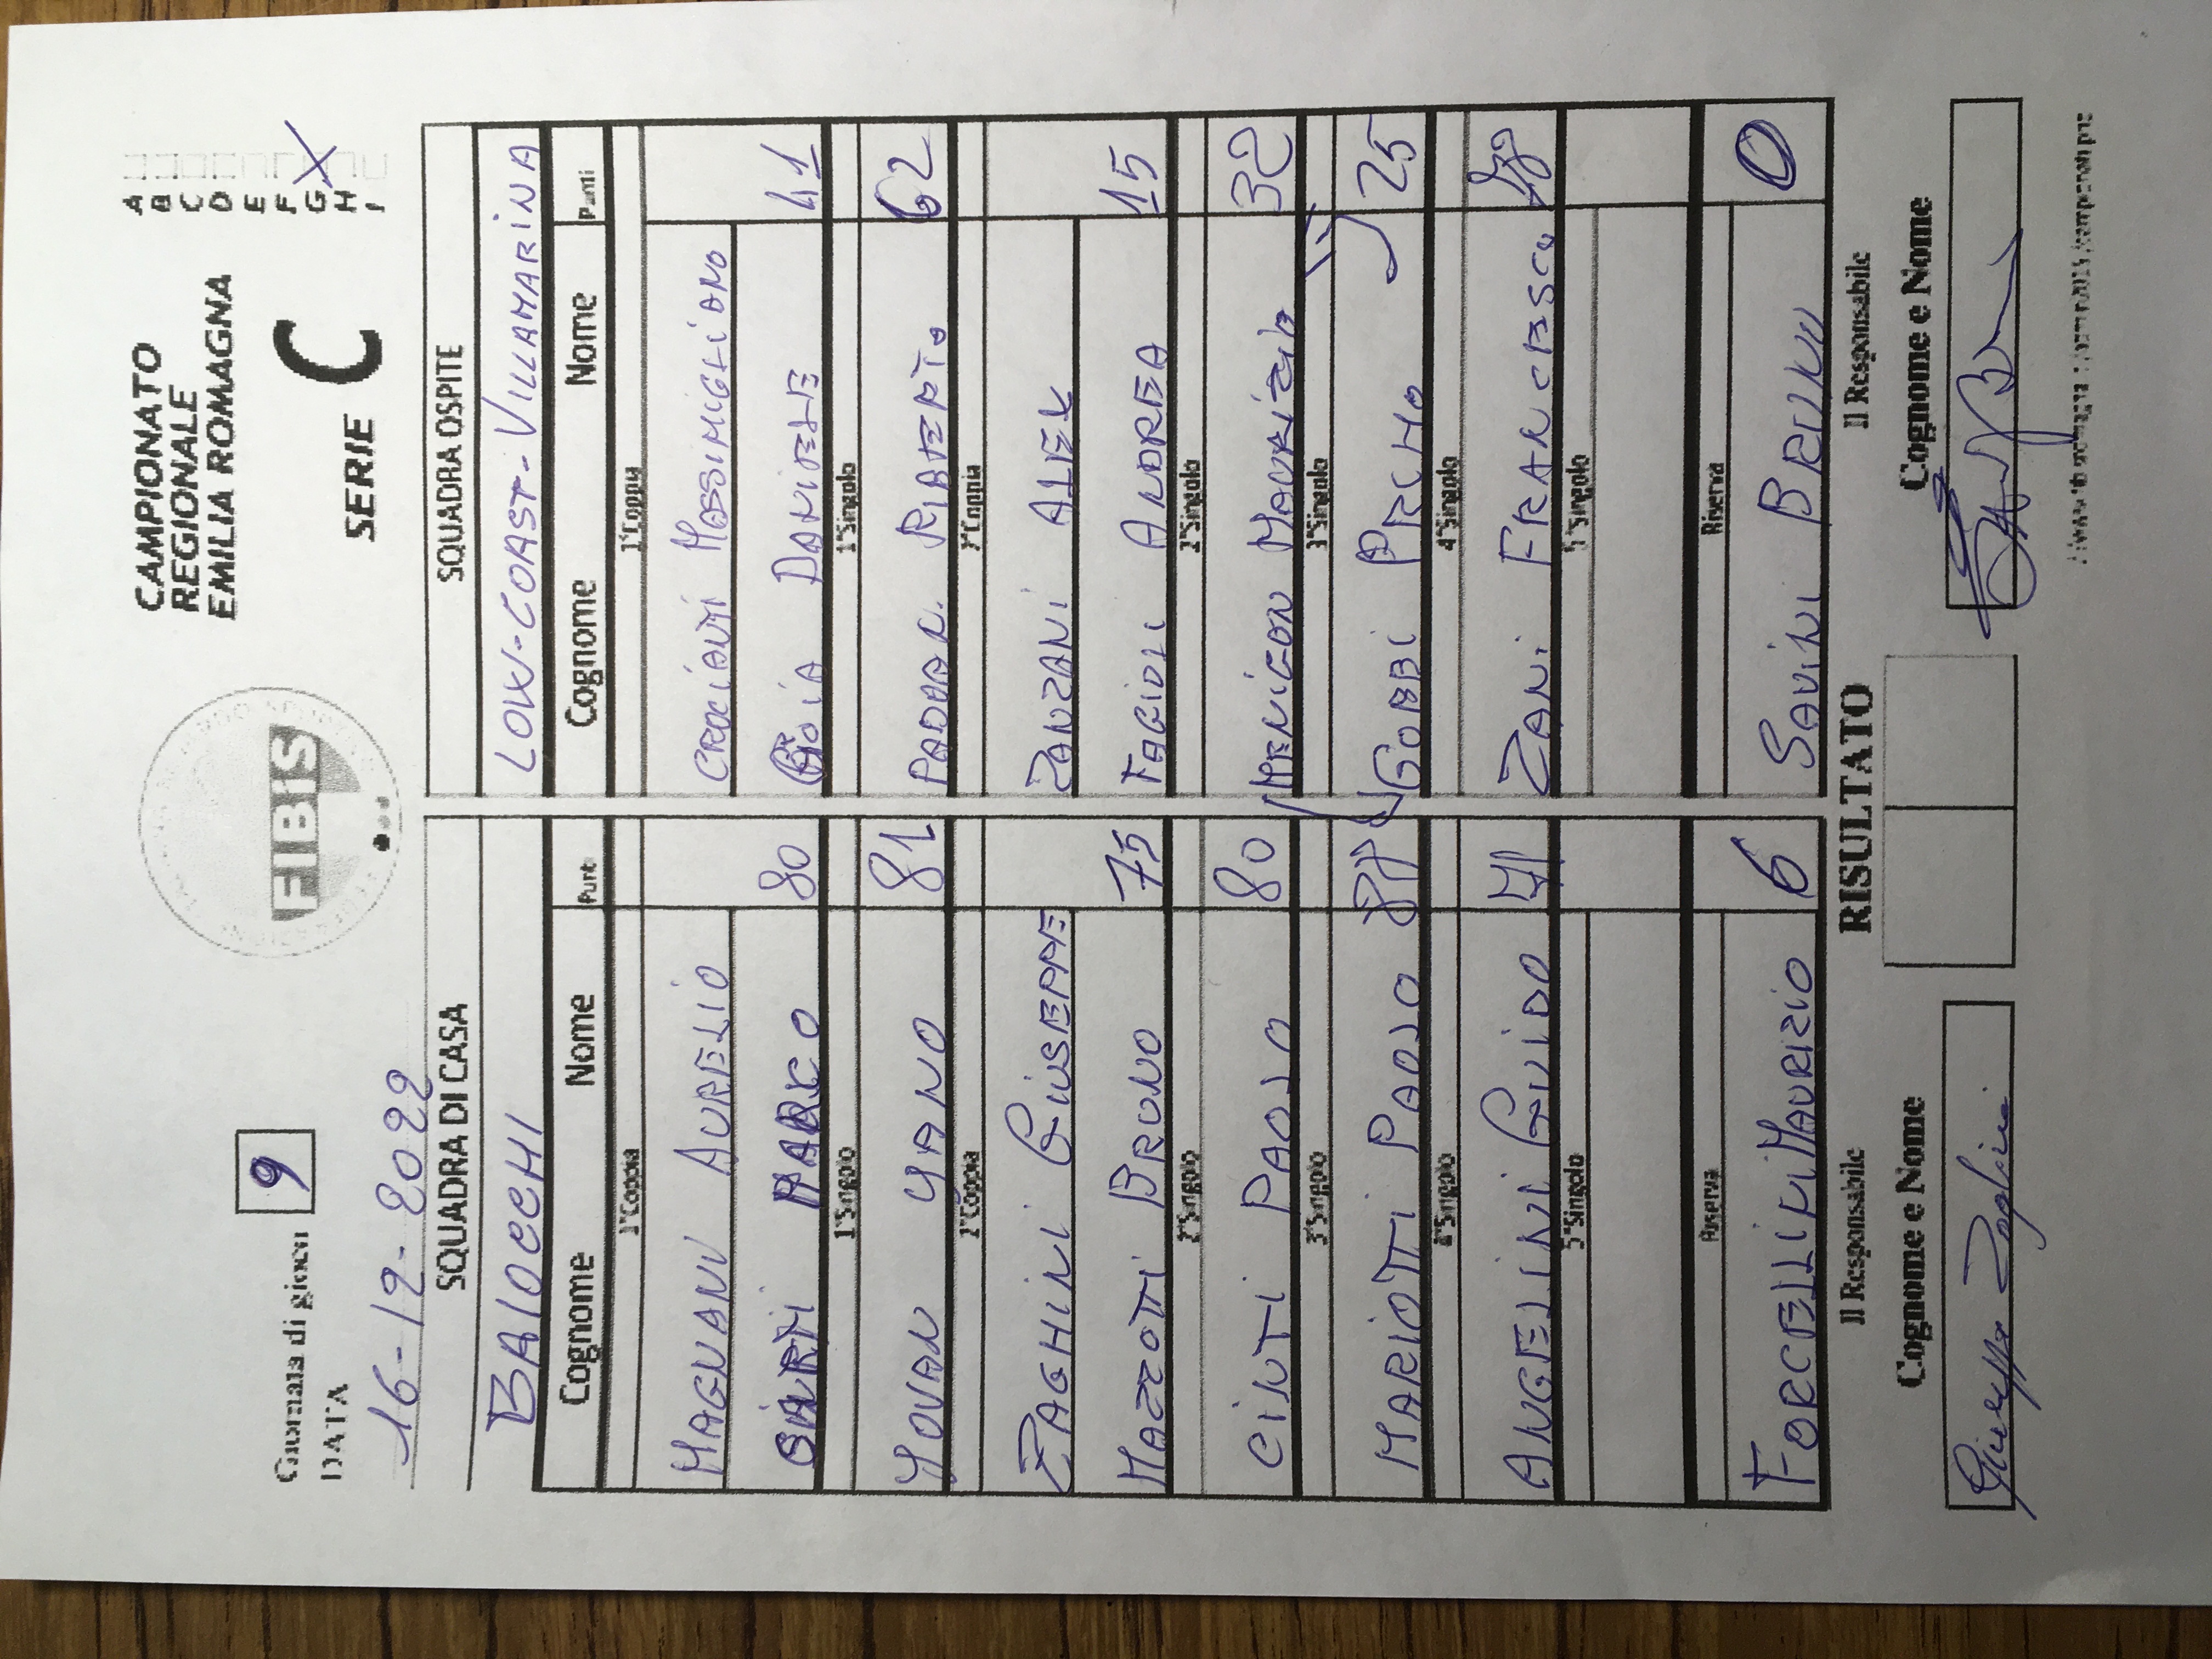 CAMPIONATO
REGIONALE
EMILIA ROMAGNA
SERIE C
A
B
C
D
E
F
G X
H
I
FIBIS
Giornata di gioco 9
DATA
16-12-2022
SQUADRA DI CASA
BAIOCCHI
Cognome Nome Punti
1°Coppia
MAGNANI AURELIO
MARCO 80
1°Singolo
YOVAN YANO 81
2°Coppia
ZAGHINI GIUSEPPE
MAZZOTTI BRUNO 75
2°Singolo
CINTI PAOLO 80
3°Singolo
MARIOTTI PAOLO
4°Singolo
ANGELINI GUIDO
5°Singolo
Riserva
FORCELLINI MAURIZIO 6
SQUADRA OSPITE
LOW-COAST-VILLAMARINA
Cognome Nome Punti
1°Coppia
MASSIMIGLIANO
DANIELE 41
1°Singolo
62
2°Coppia
ZANZANI ALEX
FAGIOLI ANDREA 15
2°Singolo
MAURIZIO 32
3°Singolo
GOBBI 25
4°Singolo
ZANI FRANCESCO
5°Singolo
Riserva
SAVINI BRUNO 0
RISULTATO
Il Responsabile
Cognome e Nome
Giuseppe Zaghini
Il Responsabile
Cognome e Nome